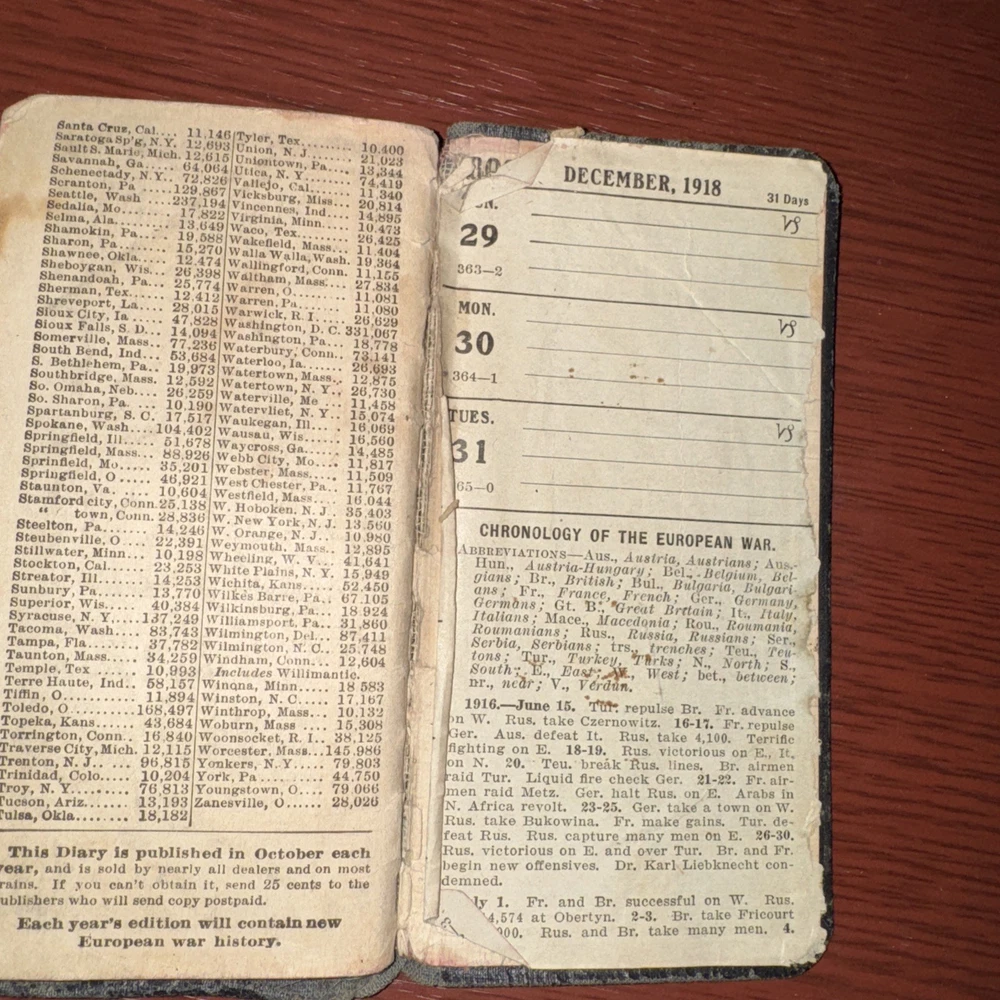 Santa Cruz, Cal.... 11,146
Saratoga Sp'g, N.Y. 12,693
Sault S. Marie, Mich. 12,615
Savannah, Ga...... 64,064
Schenectady, N.Y.. 72,826
Scranton, Pa .....129,867
Seattle, Wash ....237,194
Sedalia, Mo....... 17,822
Selma, Ala........ 13,649
Shamokin, Pa..... 19,588
Sharon, Pa........ 15,270
Shawnee, Okla.... 12,474
Sheboygan, Wis... 26,398
Shenandoah, Pa... 25,774
Sherman, Tex..... 12,412
Shreveport, La.... 28,015
Sioux City, Ia .... 47,828
Sioux Falls, S. D... 14,094
Somerville, Mass.. 77,236
South Bend, Ind... 53,684
S. Bethlehem, Pa.. 19,973
Southbridge, Mass. 12,592
So. Omaha, Neb.... 26,259
So. Sharon, Pa. .... 10,190
Spartanburg, S. C. 17,517
Spokane, Wash....104,402
Springfield, Ill..... 51,678
Springfield, Mass.. 88,926
Sprinfield, Mo..... 35,201
Springfield, O ..... 46,921
Staunton, Va. .... 10,604
Stamford city, Conn. 25,138
" town, Conn. 28,836
Steelton, Pa....... 14,246
Steubenville, O.... 22,391
Stillwater, Minn... 10,198
Stockton, Cal...... 23,253
Streator, Ill....... 14,253
Sunbury, Pa....... 13,770
Superior, Wis..... 40,384
Syracuse, N. Y.....137,249
Tacoma, Wash.... 83,743
Tampa, Fla....... 37,782
Taunton, Mass..... 34,259
Temple, Tex ...... 10,993
Terre Haute, Ind.. 58,157
Tiffin, O .......... 11,894
Toledo, O .........168,497
Topeka, Kans..... 43,684
Torrington, Conn.. 16,840
Traverse City, Mich. 12,115
Trenton, N. J...... 96,815
Trinidad, Colo..... 10,204
Troy, N. Y......... 76,813
Tucson, Ariz....... 13,193
Tulsa, Okla........ 18,182
Tyler, Tex........ 10,400
Union, N. J...... 21,023
Uniontown, Pa.... 13,344
Utica, N. Y....... 74,419
Vallejo, Cal....... 11,340
Vicksburg, Miss... 20,814
Vincennes, Ind.... 14,895
Virginia, Minn.... 10,473
Waco, Tex........ 26,425
Wakefield, Mass... 11,404
Walla Walla, Wash. 19,364
Wallingford, Conn. 11,155
Waltham, Mass.... 27,834
Warren, O........ 11,081
Warren, Pa....... 11,080
Warwick, R. I..... 26,629
Washington, D. C. 331,067
Washington, Pa... 18,778
Waterbury, Conn.. 73,141
Waterloo, Ia...... 26,693
Watertown, Mass.. 12,875
Watertown, N. Y.. 26,730
Waterville, Me ... 11,458
Watervliet, N. Y... 15,074
Waukegan, Ill.... 16,069
Wausau, Wis..... 16,560
Waycross, Ga..... 14,485
Webb City, Mo.... 11,817
Webster, Mass.... 11,509
West Chester, Pa.. 11,767
Westfield, Mass... 16,044
W. Hoboken, N. J.. 35,403
W. New York, N. J. 13,560
W. Orange, N. J... 10,980
Weymouth, Mass.. 12,895
Wheeling, W. V... 41,641
White Plains, N. Y. 15,949
Wichita, Kans.... 52,450
Wilkes Barre, Pa.. 67,105
Wilkinsburg, Pa... 18,924
Williamsport, Pa.. 31,860
Wilmington, Del... 87,411
Wilmington, N. C.. 25,748
Windham, Conn... 12,604
Includes Willimantic.
Winona, Minn.... 18,583
Winston, N. C.... 17,167
Winthrop, Mass... 10,132
Woburn, Mass .... 15,308
Woonsocket, R. I.. 38,125
Worcester, Mass...145,986
Yonkers, N. Y..... 79,803
York, Pa ......... 44,750
Youngstown, O.... 79,066
Zanesville, O...... 28,026
This Diary is published in October each
year, and is sold by nearly all dealers and on most
rains. If you can't obtain it, send 25 cents to the
ublishers who will send copy postpaid.
Each year's edition will contain new
European war history.
DECEMBER, 1918
31 Days
UN.
29
363—2
VS
MON.
30
364—1
VS
TUES.
31
65—0
VS
CHRONOLOGY OF THE EUROPEAN WAR.
ABBREVIATIONS—Aus., Austria, Austrians; Aus-
Hun., Austria-Hungary; Bel., Belgium, Bel-
gians; Br., British; Bul., Bulgaria, Bulgari-
ans; Fr., France, French; Ger., Germany,
Germans; Gt. B., Great Britain; It., Italy,
Italians; Mace., Macedonia; Rou., Roumania,
Roumanians; Rus., Russia, Russians; Ser.,
Serbia, Serbians; trs., trenches; Teu., Teu-
tons; Tur., Turkey, Turks; N., North; S.,
South; E., East; W., West; bet., between;
nr., near; V., Verdun.
1916.—June 15. Tur. repulse Br. Fr. advance
on W. Rus. take Czernowitz. 16-17. Fr. repulse
Ger. Aus. defeat It. Rus. take 4,100. Terrific
fighting on E. 18-19. Rus. victorious on E., It.
on N. 20. Teu. break Rus. lines. Br. airmen
raid Tur. Liquid fire check Ger. 21-22. Fr. air-
men raid Metz. Ger. halt Rus. on E. Arabs in
N. Africa revolt. 23-25. Ger. take a town on W.
Rus. take Bukowina. Fr. make gains. Tur. de-
feat Rus. Rus. capture many men on E. 26-30.
Rus. victorious on E. and over Tur. Br. and Fr.
begin new offensives. Dr. Karl Liebknecht con-
demned.
ly 1. Fr. and Br. successful on W. Rus.
4,574 at Obertyn. 2-3. Br. take Fricourt
000. Rus. and Br. take many men. 4.